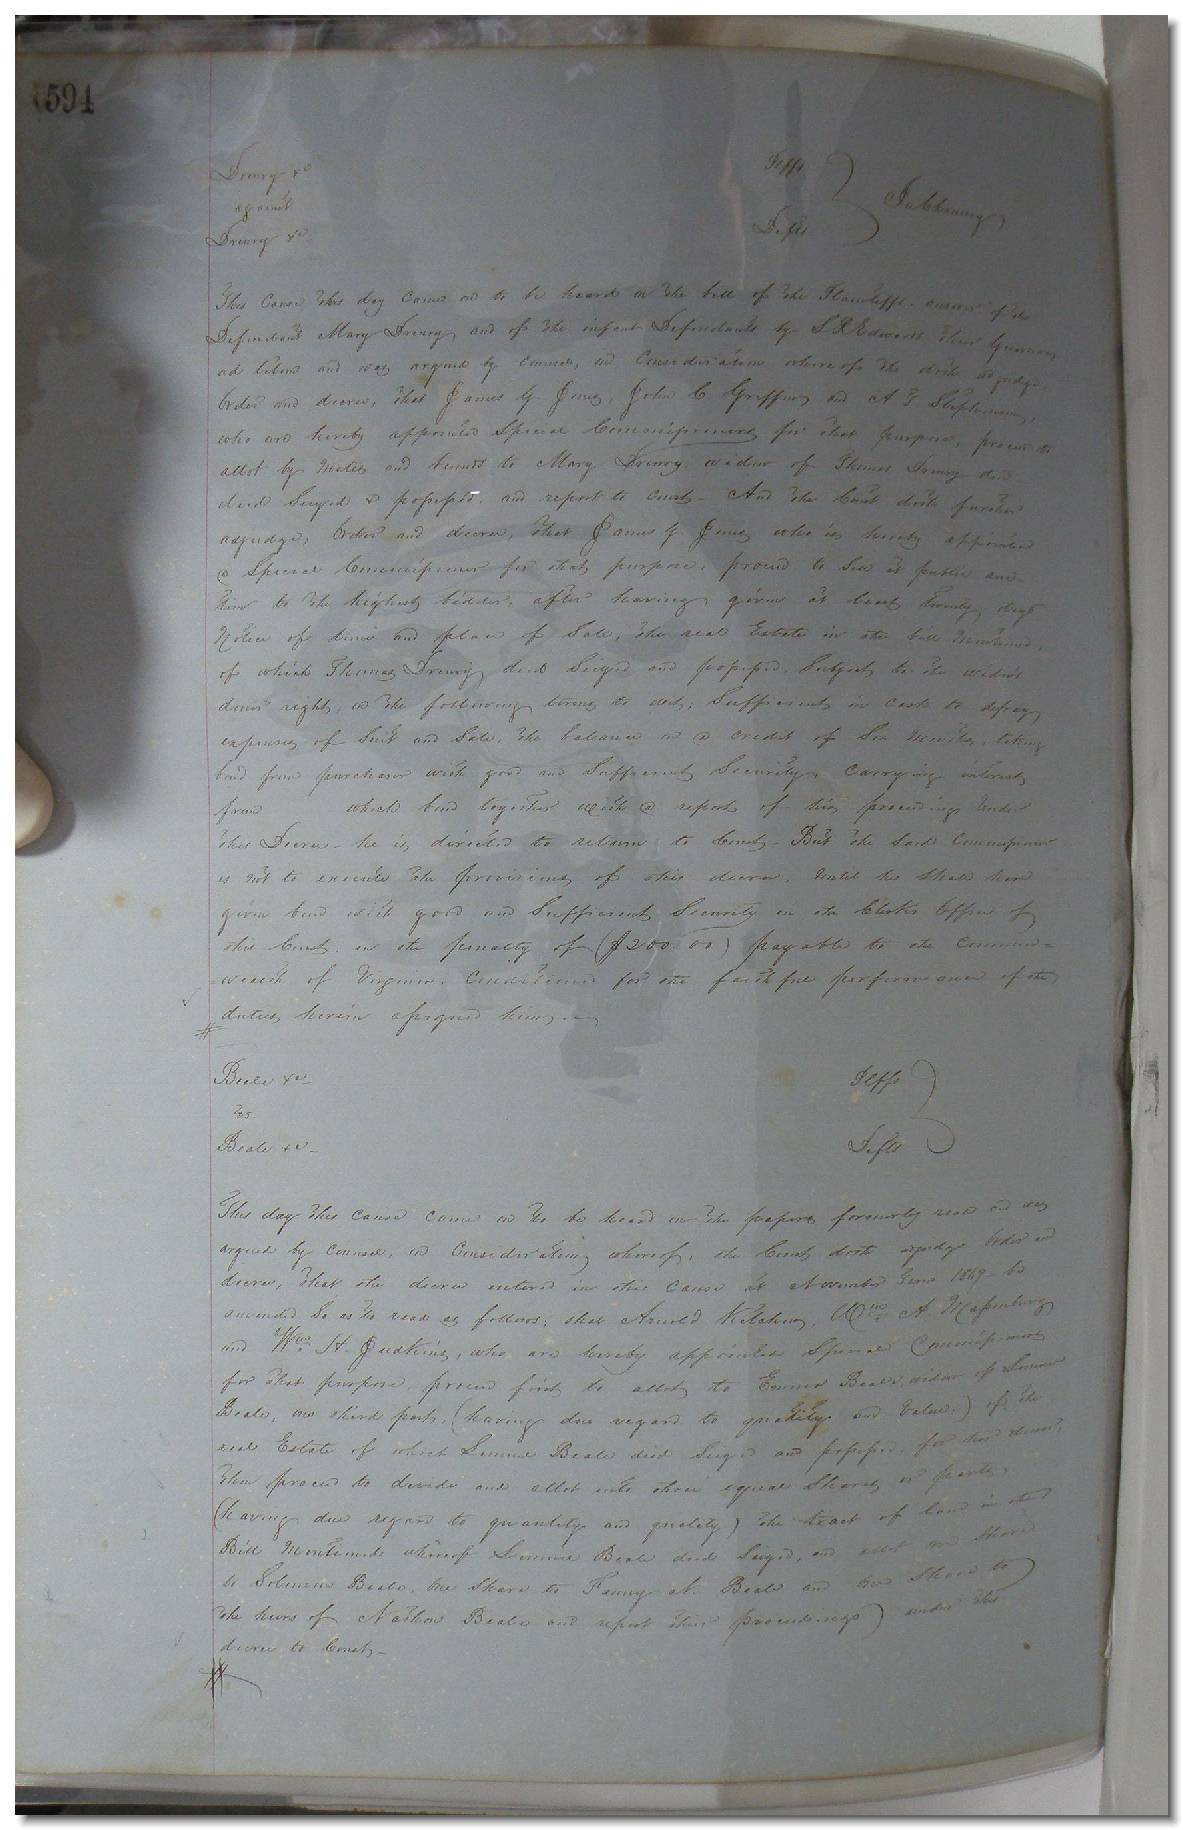 594
Drewry &c Plffs
against In Chancery
Drewry &c Defts
This Cause this day came on to be heard on the bill of the Plaintiffs, answer of the
Defendant Mary Drewry and of the infant Defendants by S R Edwards their Guardian
ad litem and was argued by Counsel, on Consideration whereof the doth adjudge,
Order and decree, that James G. Jones, John C Griffin and A T Stephenson,
who are hereby appointed Special Commissioners for that purpose, proceed to
allot by metes and bounds to Mary Drewry widow of Thomas Drewry decd
died Seized & possessed, and report to Court. And the Court doth further
adjudge, Order and decree, that James G. Jones who is hereby appointed
a Special Commissioner for that purpose, proceed to Sell at public auc-
tion to the highest bidder, after having given at least twenty days
Notice of time and place of Sale, the real Estate in the bill mentioned,
of which Thomas Drewry died Seized and possessed. Subject to the widow's
dower right, on the following terms to wit; Sufficient in cash to defray
expenses of Suit and Sale, the balance on a credit of Six Months, taking
bond from purchaser with good and Sufficient Security, carrying interest
from which bond together with a report of his proceedings under
this Decree, he is directed to return to Court. But the Said Commissioner
is not to execute the provisions of this decree, until he shall have
given bond with good and Sufficient Security in the Clerks Office of
this Court, in the penalty of ($200.00) payable to the Common=
=wealth of Virginia, Conditioned for the faithful performance of the
duties herein assigned him.
Beale &c Plffs
vs
Beale &c Defts
This day this cause came on to be heard on the papers formerly read and was
argued by counsel, on Consideration whereof, the Court doth adjudge Order and
decree, that the decree entered in this cause at November Term 1869 be
amended So as to read as follows; that Arnold Kitchen, Wm A Massenburg
and Wm H. Judkins, who are hereby appointed Special Commissioners
for that purpose, proceed first to allot to Beale, widow of
Beale, one third part, (having due regard to quantity and value,) of the
real Estate of which Beale died Seized and possessed for her dower,
then proceed to divide and allot into three equal Shares or parts,
(having due regard to quantity and quality) the tract of land in the
Bill Mentioned whereof Beale died Seized, and allot one Share
to Solomon Beale, One Share to Fanny N. Beale and One Share to
the heirs of Nathan Beale and report their proceedings under this
decree to Court.